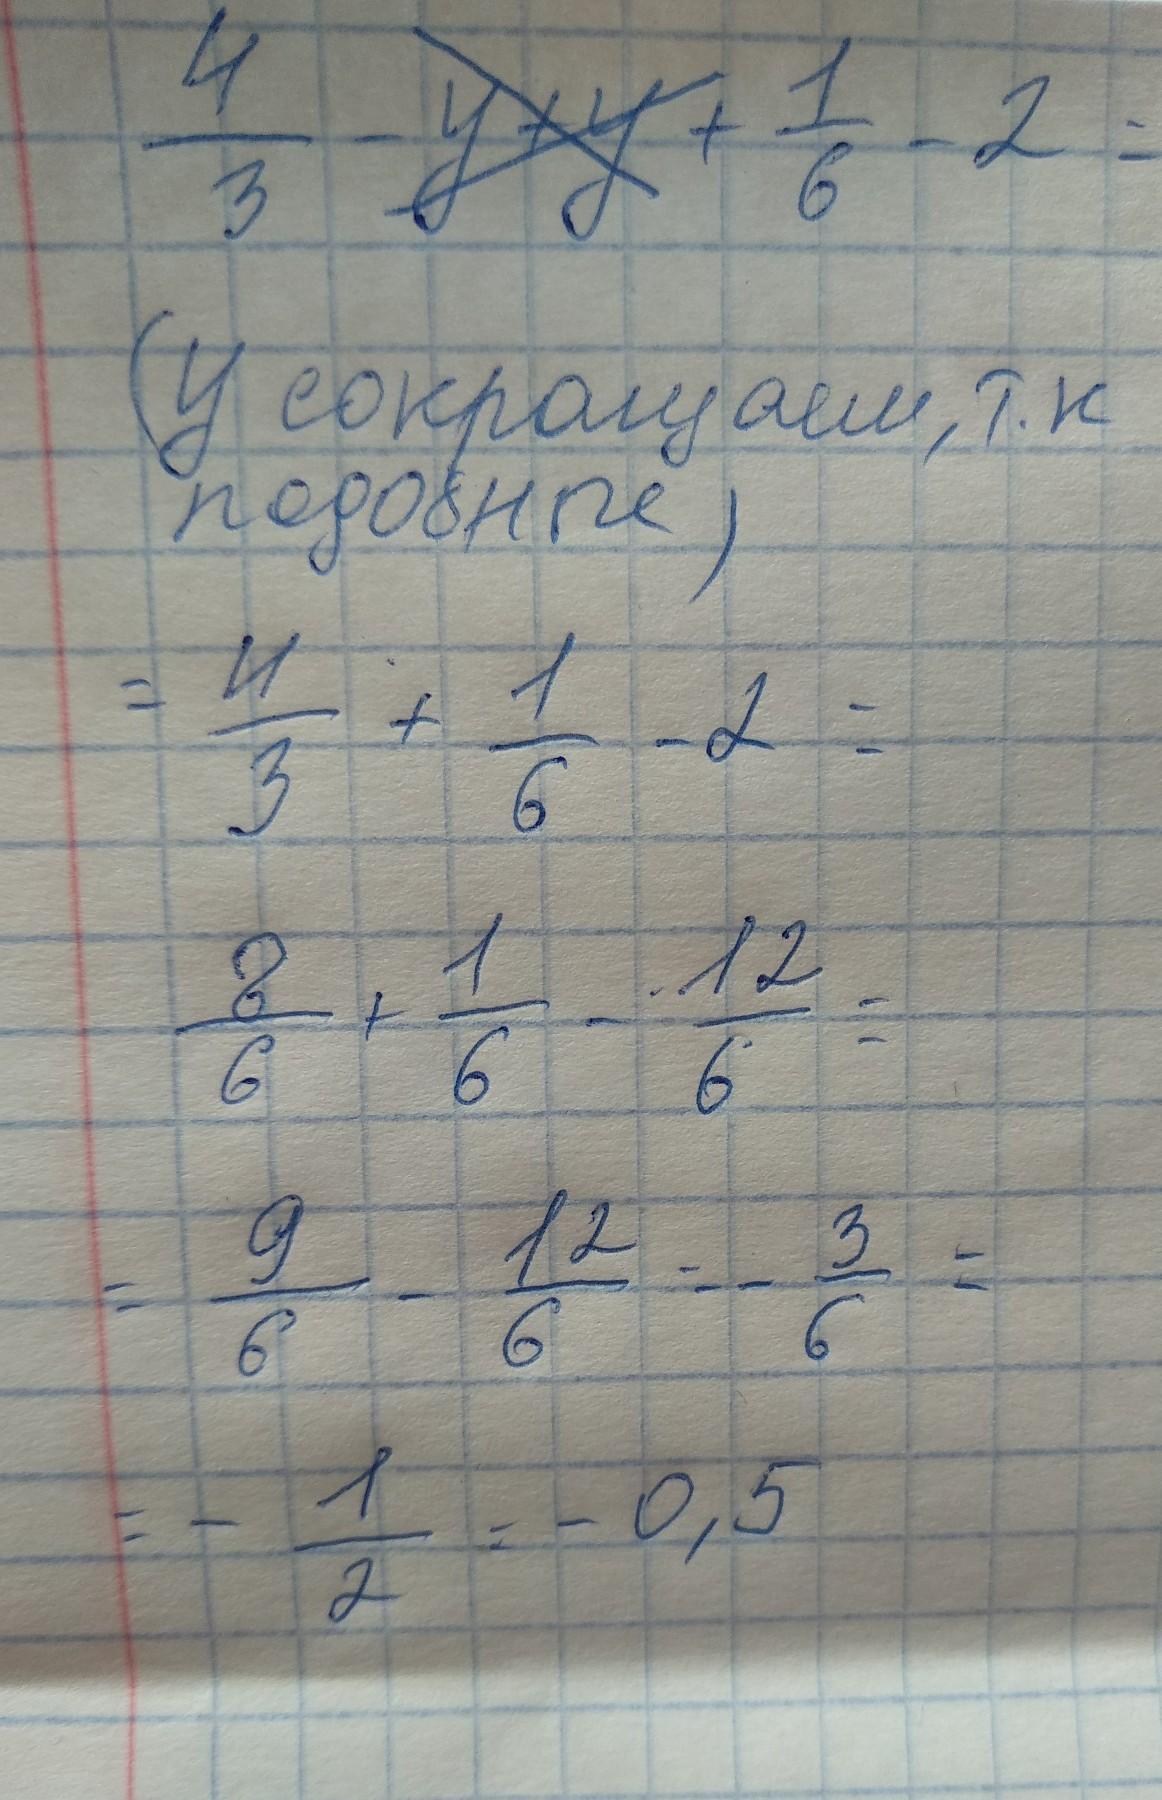 4/3 - y + y + 1/6 - 2 =
(y сокращаем, т.к
подобные)
= 4/3 + 1/6 - 2 =
8/6 + 1/6 - 12/6 =
= 9/6 - 12/6 = - 3/6 =
= - 1/2 = - 0,5